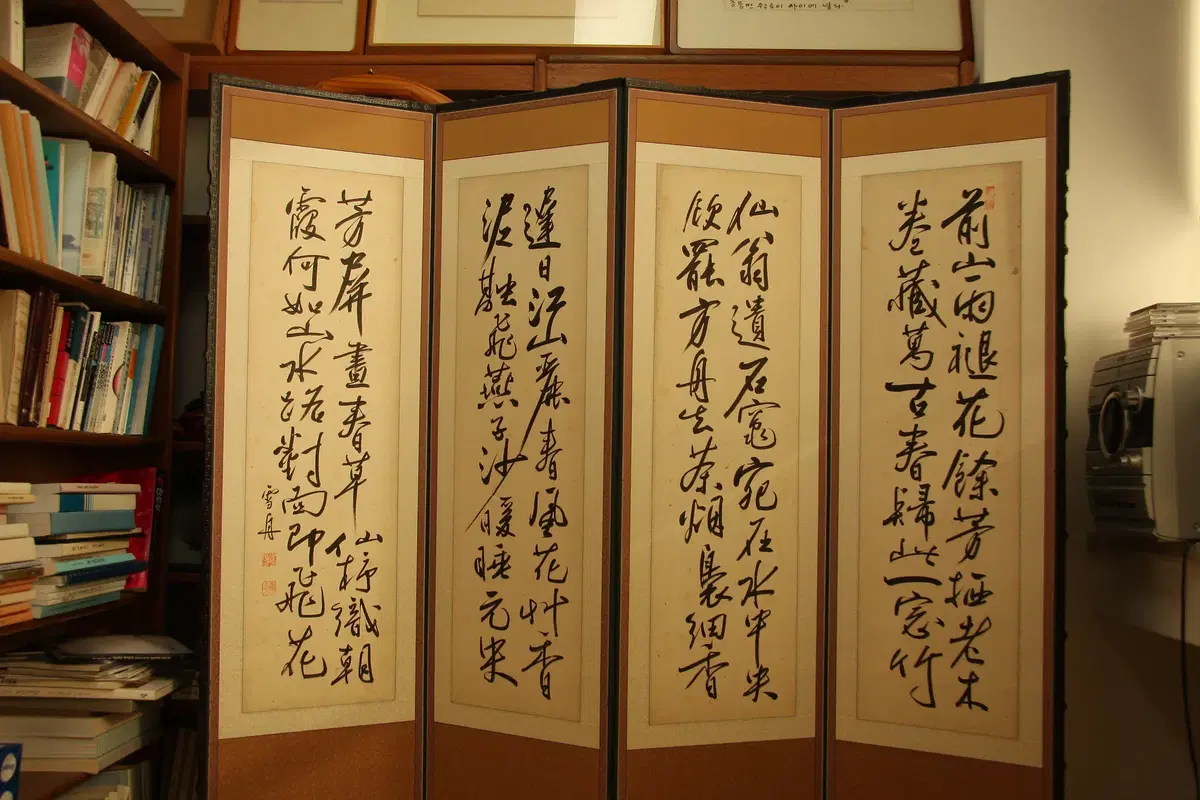 前山雨褪花餘芳栖老木
卷藏萬古春歸此一窓竹
仙翁遺石竈宛在水中央
飲罷方舟去茶烟裊細香
遲日江山麗春風花艸香
泥融飛燕子沙暖睡元央
芳屏畫春草仙杼織朝
霞何如山水路對面即飛花